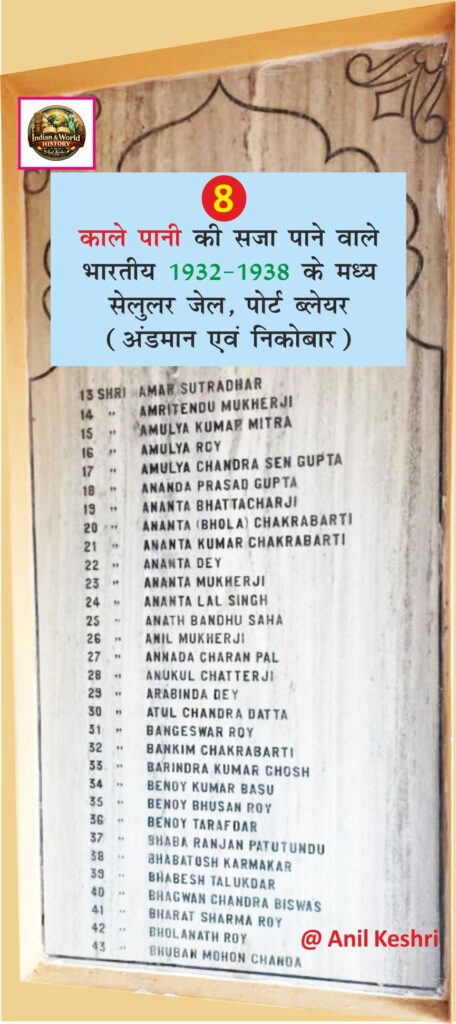 Indian & World
HISTORY
8
काले पानी की सजा पाने वाले
भारतीय 1932-1938 के मध्य
सेलुलर जेल, पोर्ट ब्लेयर
(अंडमान एवं निकोबार)
13 SHRI AMAR SUTRADHAR
14 " AMRITENDU MUKHERJI
15 " AMULYA KUMAR MITRA
16 " AMULYA ROY
17 " AMULYA CHANDRA SEN GUPTA
18 " ANANDA PRASAD GUPTA
19 " ANANTA BHATTACHARJI
20 " ANANTA (BHOLA) CHAKRABARTI
21 " ANANTA KUMAR CHAKRABARTI
22 " ANANTA DEY
23 " ANANTA MUKHERJI
24 " ANANTA LAL SINGH
25 " ANATH BANDHU SAHA
26 " ANIL MUKHERJI
27 " ANNADA CHARAN PAL
28 " ANUKUL CHATTERJI
29 " ARABINDA DEY
30 " ATUL CHANDRA DATTA
31 " BANGESWAR ROY
32 " BANKIM CHAKRABARTI
33 " BARINDRA KUMAR GHOSH
34 " BENOY KUMAR BASU
35 " BENOY BHUSAN ROY
36 " BENOY TARAFDAR
37 " BHABA RANJAN PATUTUNDU
38 " BHABATOSH KARMAKAR
39 " BHABESH TALUKDAR
40 " BHAGWAN CHANDRA BISWAS
41 " BHARAT SHARMA ROY
42 " BHOLANATH ROY
43 " BHUBAN MOHON CHANDA
@ Anil Keshri